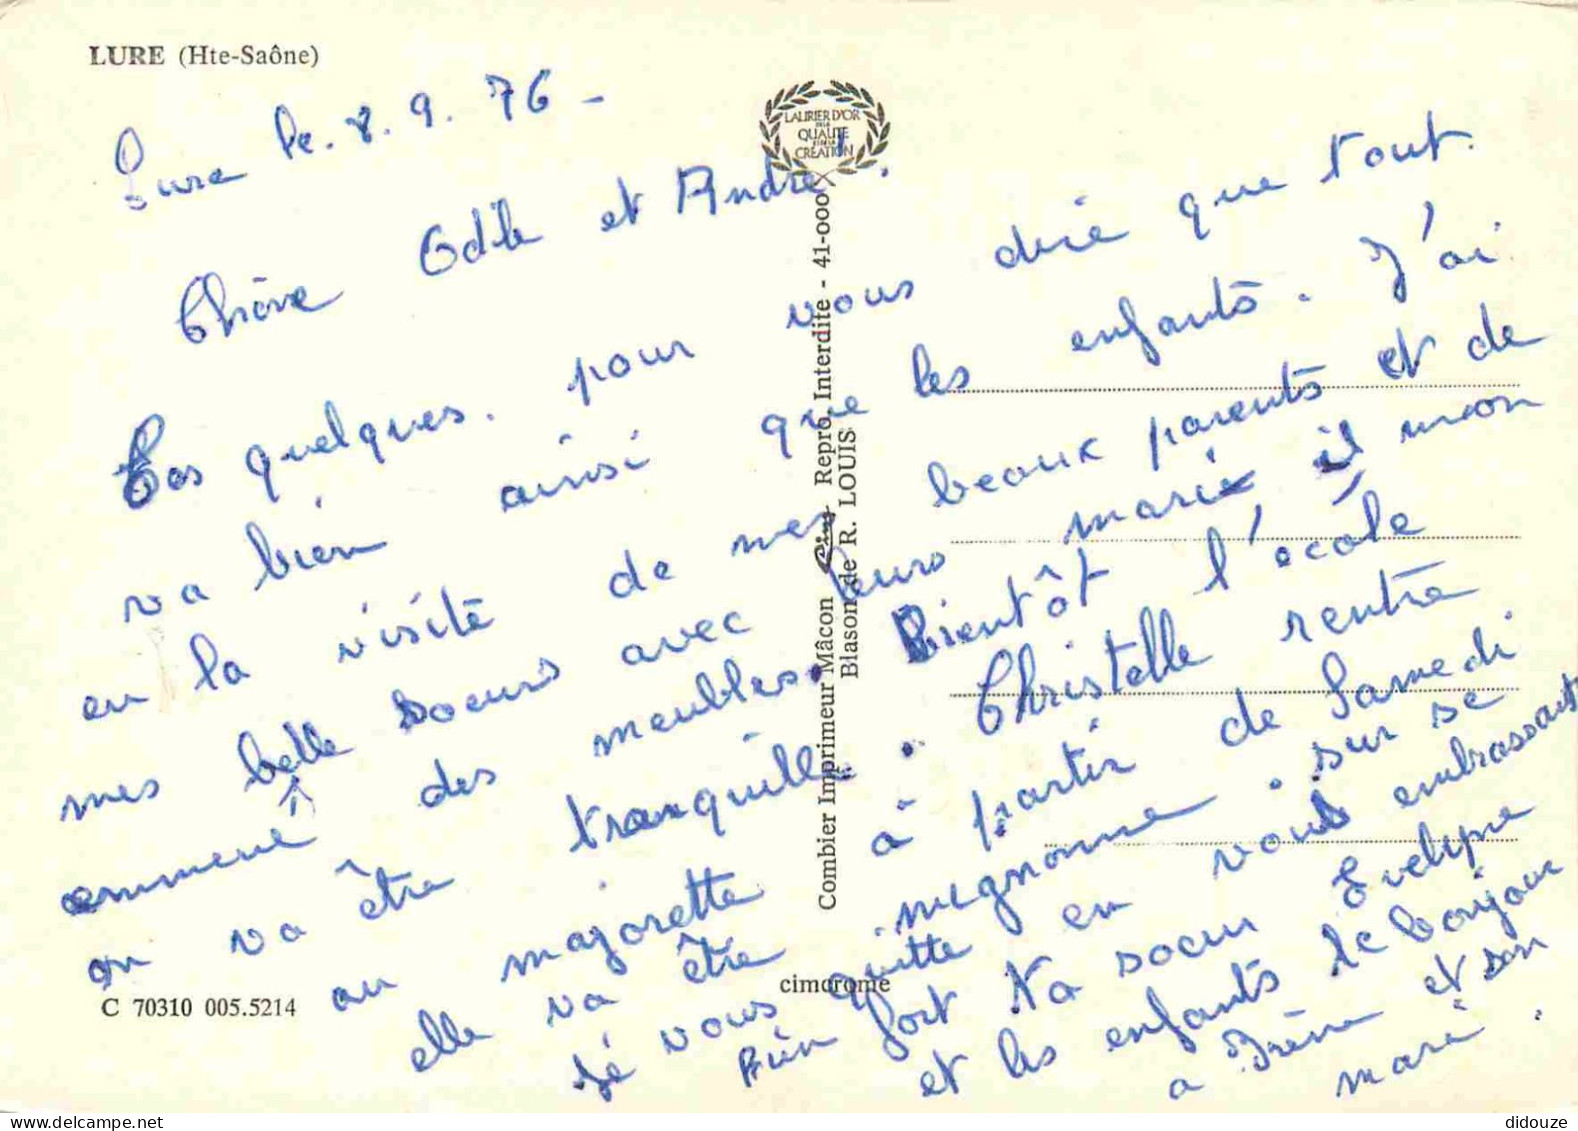 LURE (Hte-Saône)
Lure le. 8. 9. 76 -
LAURIER D'OR
DE LA
QUALITÉ
ET DE LA
CRÉATION
Chère Odile et André.
Ces quelques. pour vous dire que tout.
va bien ainsi que les enfants. J'ai
eu la visite de mes beaux parents et de
mes belle soeurs avec leurs marie il mon
emmené des meubles. Bientôt l'école
on va être tranquille. Christelle rentre
au majorette à partir de Samedi
elle va être mignonne. sur se
je vous quitte en vous embrassant
bien fort ta soeur Evelyne
et les enfants le bonjour
a Irène et son
mari.
Combier Imprimeur Mâcon Cim Repro. Interdite - 41-000
Blason de R. LOUIS
cimcrome
C 70310 005.5214
didouze